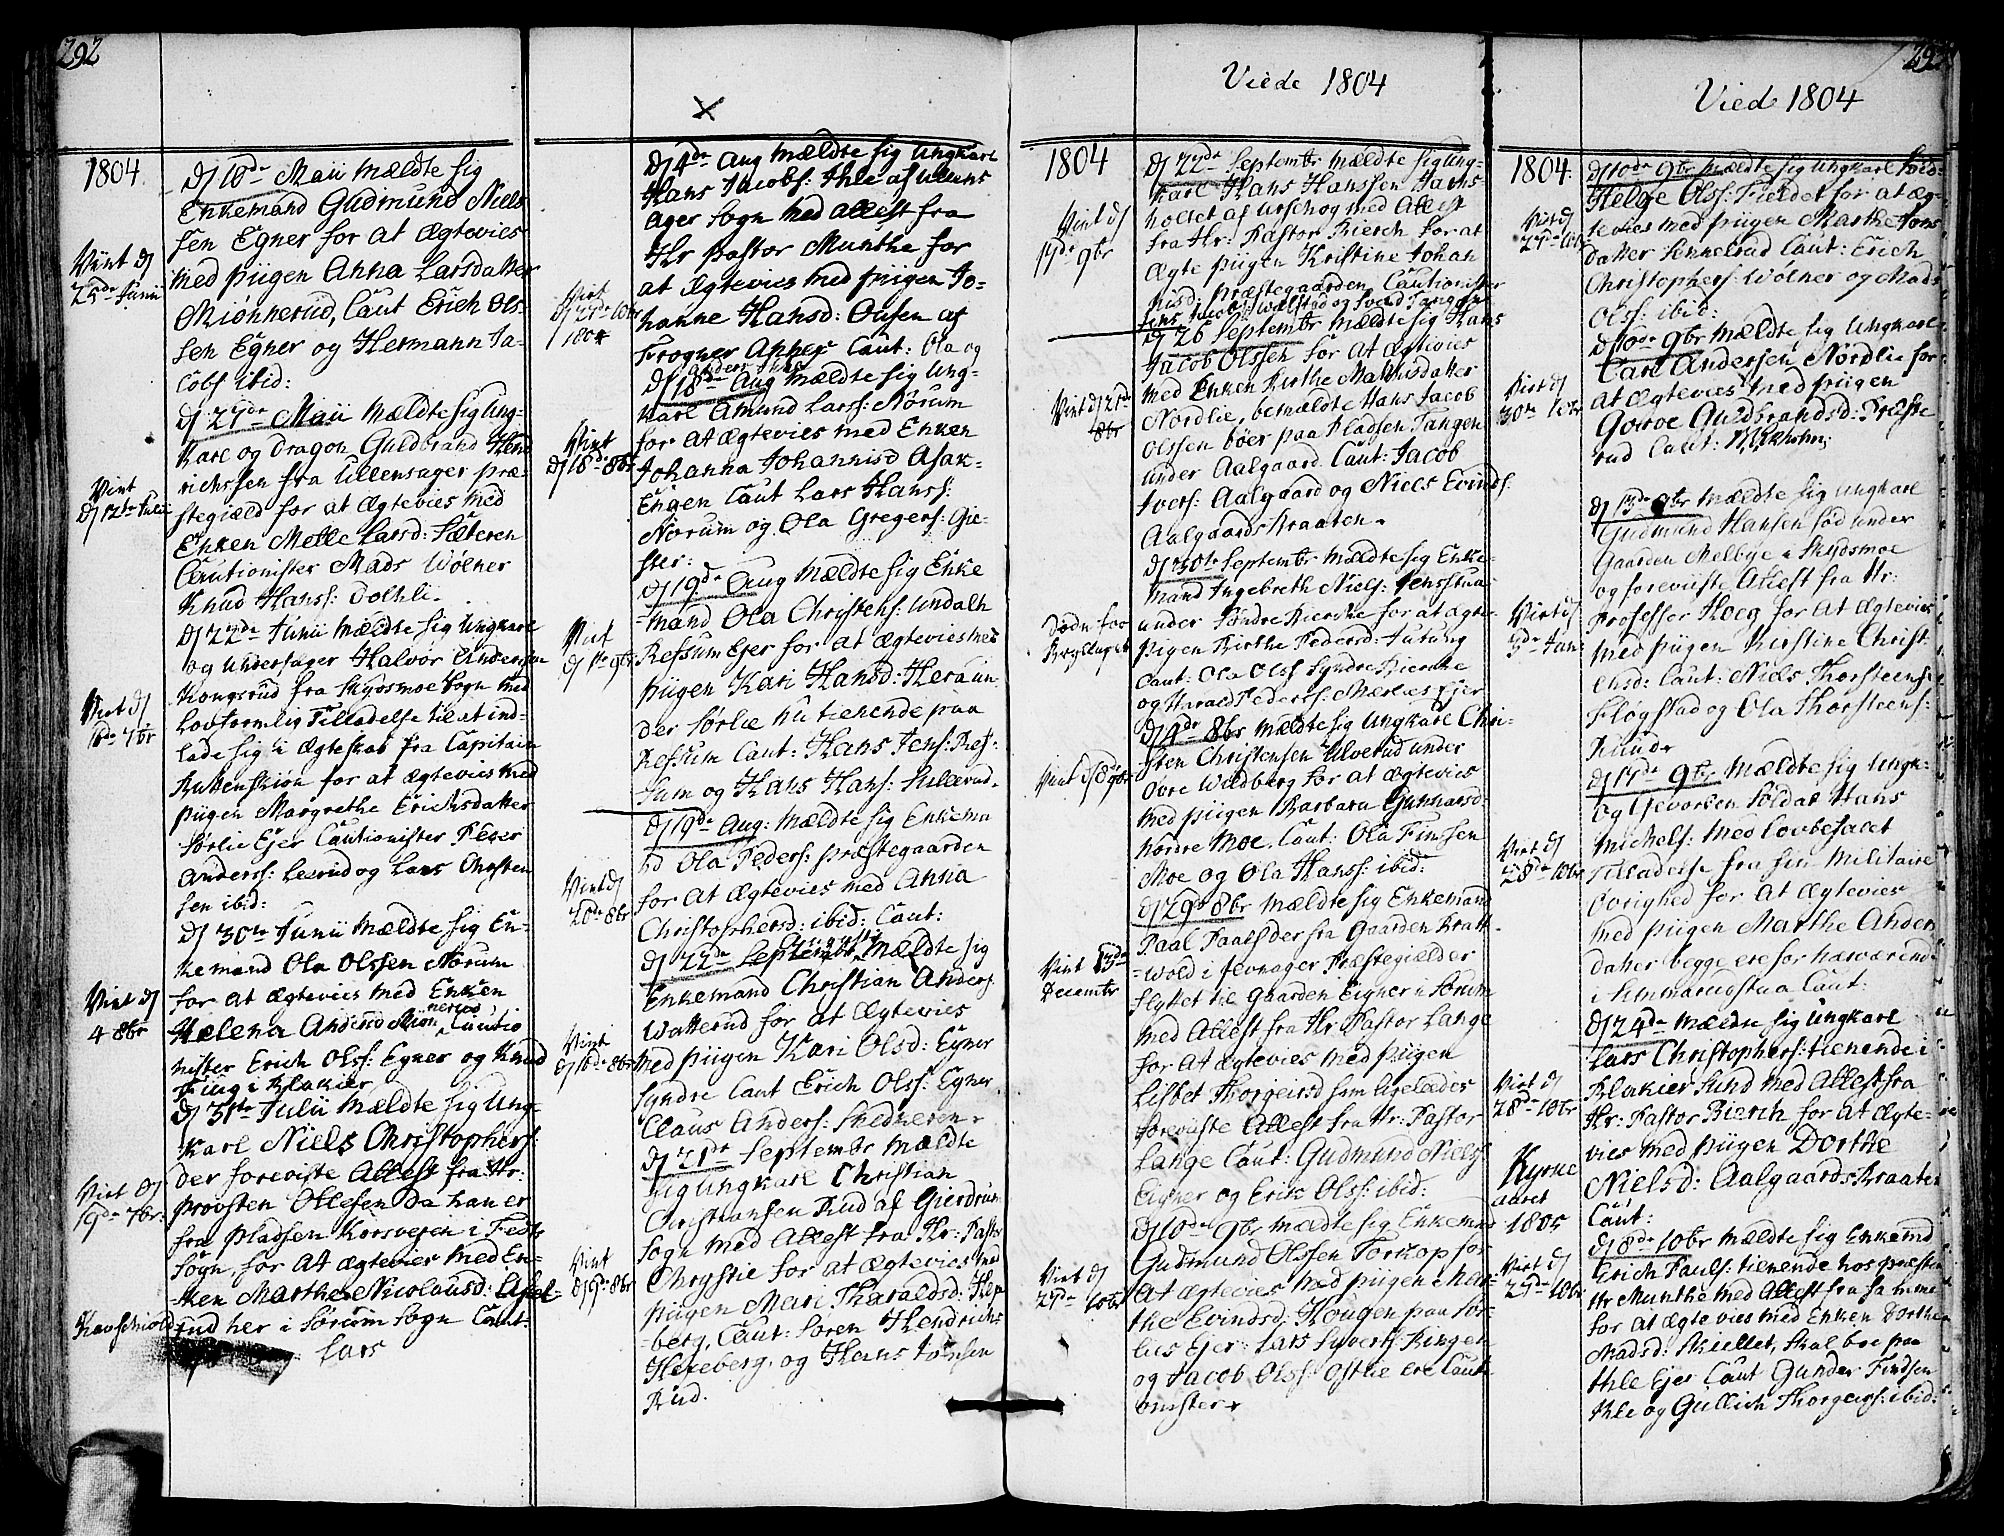 292
1804.
Dj 16de Maii mældte sig
Enkemand Gudmund Niels
sen Egner for at Ægtevies
med piigen Anna Larsdatter
Miønnerud, Caut Erich Ols-
sen Egner og Hermann Ja-
cobs ibid:
Viint dj
25de Junii
Dj 27de Maii Mældte sig Ung-
karl og Dragon Guldbrand Hend
richssen fra Ullensager præ-
stegiæld for at Ægtevies med
Enken Mette Larsd: Sæteren
Cautionister Mads Wølner
Knud Hanss: Dolhli.
Viint
Dj 12te Julii
Dj 22de Junii Mældte sig Ungkarl
og Undersager Halvor Andersen
Kongsrud fra Skydsmoe Sogn med
Lovformlig Tilladelse til at ind-
lade sig i Ægteskab fra Capitain
for at Ægtevies med
piigen Margrethe Erichsdatter
Sørlie Ejer Cautionister Peder
Anderss: Leerud og Lars Christen
sen ibid:
Viet dj
7br
Dj 30te Junii Mældte sig En-
kemand Ola Olssen Nørum
for at Ægtevies med Enken
Helena Andersd Miønnerud Cautio
nister Erich Olss: Egner og Knud
i Blakier
Viet dj
4 8br
Dj 31te Julii Mældte sig Ung-
karl Niels Christophers:
der foreviste Attest fra Hr.
Provsten Ottesen da han er
fra pladsen Korsvejen i Feets
Sogn, for at Ægtevier med En-
ken Marthe Nicolausd: Asak-
rud her i Sørum Sogn Caut:
Lars
Viet dj
19de 7br:
X
Dj 4de Aug Mældte sig Ungkarl
Hans Jacobs: Ihle af Ullens
ager Sogn med Attest fra
Hr Pastor Munthe for
at Ægtevies med piigen Jo-
hanne Hansd: Ousen af
Frogner Annex Caut: Ola og
Anders Ihle
Viet
dj 27de 10br
1804
Dj 18de Aug Mældte sig Ung-
karl Amund Larss: Nørum
for at Ægtevies med Enken
Johanna Johannisd Asak-
Engen Caut Lars Hanss:
Nørum og Ola Gregers: Gie-
ster:
Viet
dj 18de 8br
Dj 19de Aug Mældte sig Enke
mand Ola Christens: Undalh
Refsum Ejer for at Ægtevies med
piigen Kari Hansd: Hera un-
der Sørlie nu tienende paa
Refsum Caut: Hans Jens: Ref-
sum og Hans Hans: Julsrud.
Viet
dj 1te 9br
Dj 19de Aug: Mældte sig Enkema
nd Ola Peders: præstegaarden
for at Ægtevies med Anna
Christophersd: ibid: Caut:
Viet dj
20de 8br
Dj 22de Septembr Mældte sig
Enkemand Christian Anders:
Watterud for at Ægtevies
med piigen Kari Olsd: Egner
Syndre Caut Erich Olss: Egner
Claus Anders: Skedneren
Viet
dj 16de 8br
Dj 21de Septembr Mældte
sig Ungkarl Christian
Christiansen Rud af Gierdrum
Sogn med Attest fra Hr: Pastor
Chrystie for at Ægtevies med
piigen Mari Tharaldsd: Hexe
berg, Caut: Soren Hendrichs
Hexeberg, og Hans Jonsen
Rud.
Viet
8br
Viede 1804
1804
Dj 22de Septembr Mældte sig Ung-
karl Hans Hanssen Jachs-
holtet af Urschog med Attest
fra Hr: Pastor Bierch for at
Ægte piigen Kristine Johan
nisd: Præstegaarden Cautionister
Jens Jacobs: Wølstad og Svend Tangen
Viet dj
17de 9br
Dj 26 Septembr Mældte sig Hans
Jacob Olssen for at Ægtevies
med Enken Birthe Mathisdatter
Nordlie, bemældte Hans Jacob
Olssen boer paa Pladsen Tangen
under Aalgaard Caut: Jacob
Ivers: Aalgaard og Niels Evinds:
Aalgaards Braaten.
Viet dj 21de
8br
Dj 30te Septembr Mældte sig Enke-
mand Ingebreth Niels: Jensstua
under Søndre Biercke for at ægte
Pigen Birthe Pedersd: Jutung
Caut: Ola Olss Syndre Biercke
og Harald Peders: Mærlies Ejer
Døde for
Brylluppet
Dj 4de 8br Mældte sig Ungkarl Chri-
sten Christensen Ulverud under
Øvre Wildberg for at Ægtevies
med piigen Barbara Gunnarsd:
Nordre Moe. Caut: Ola Finssen
Moe og Ola Hanss: ibid:
Viet dj 18de 9br
Dj 29de 8br Mældte sig Enkemand
Paal Paalsen fra Gaarden Bratt-
wold i Jevnager Præstegiælder
flyttet til Gaarden Eigner i Sørum
med Attest fra Hr Pastor Lange
for at Ægtevies med piigen
Lisbet Thorgeirsd som ligeledes
foreviiste Attest fra Hr: Pastor
Lange Caut: Gudmund Niels
Eigner og Erik Olss: ibid:
Viet 13de
Decembr
Dj 10de 9br mældte sig Enkemd
Gudmund Olssen Torkop for
at Ægtevies med piigen Mar-
the Evindsd: Hougen paa Sør-
lies Ejer: Lars Syvers: Ringer
og Jacob Olss: Ostlie ere Caut-
onister
Viet dj
27de 10br
Vied 1804
1804.
Dj 10de 9br Mældte sig Ungkarl Sold:
Helge Olss: Fieldet for at Æg-
tevies med piigen Marthe Jons
datter Sennerud Caut: Erich
Christophers: Wølner og Mads
Olss: ibid:
Viet dj
27de 10br
Dj 10de 9br Mældte sig Ungkarl
Carl Andersen Nordlie for
at Ægtevies med piigen
Goroe Guldbrandsd: Præste
rud Caut:
Viet dj
30te 10br
Dj 13de 9br Mældte sig Ungkarl
Gudmund Hansen fød under
Gaarden Melbye i Skydsmoe
og foreviiste Attest fra Hr:
Professer Høeg for at Ægtevies
med piigen Kirstine Christ:
ensd: Caut: Niels Thorsteense
Fløgstad og Ola Thorsteens:
Knud
Viet dj
5de Jan:
Dj 17de 9br Mældte sig Ungk:
og Gevorben Soldat Hans
Michels: med Lovbefalet
Tilladelse fra sin Militaire
Øvrighed for at Ægtevies
med piigen Marthe Anders
datter begge ere for nærværende
i Simmarudstua Caut:
Viet dj
28de 10br
Dj 24de Mældte sig Ungkarl
Lars Christophers: tienende i
Blakier Sund med Attest fra
Hr: Pastor Bierch for at Ægte-
vies med piigen Dorthe
Nielsd: Aalgaards Braaten
Caut:
Viet dj
28de 10br
Kyrue
aaret
1805
Dj 8de 10br Mældte sig Enkemd
Erich Pauls: tienende hos præsten
Hr Munthe med Attest fra samme
for at Ægtevies med Enken Dorthe
Madsd: Skiellet, skal boe paa
Ihle Ejer Caut Gunder Findsen
Ihle og Gullich Thorgers: ibid:
Viet dj
29de 10br